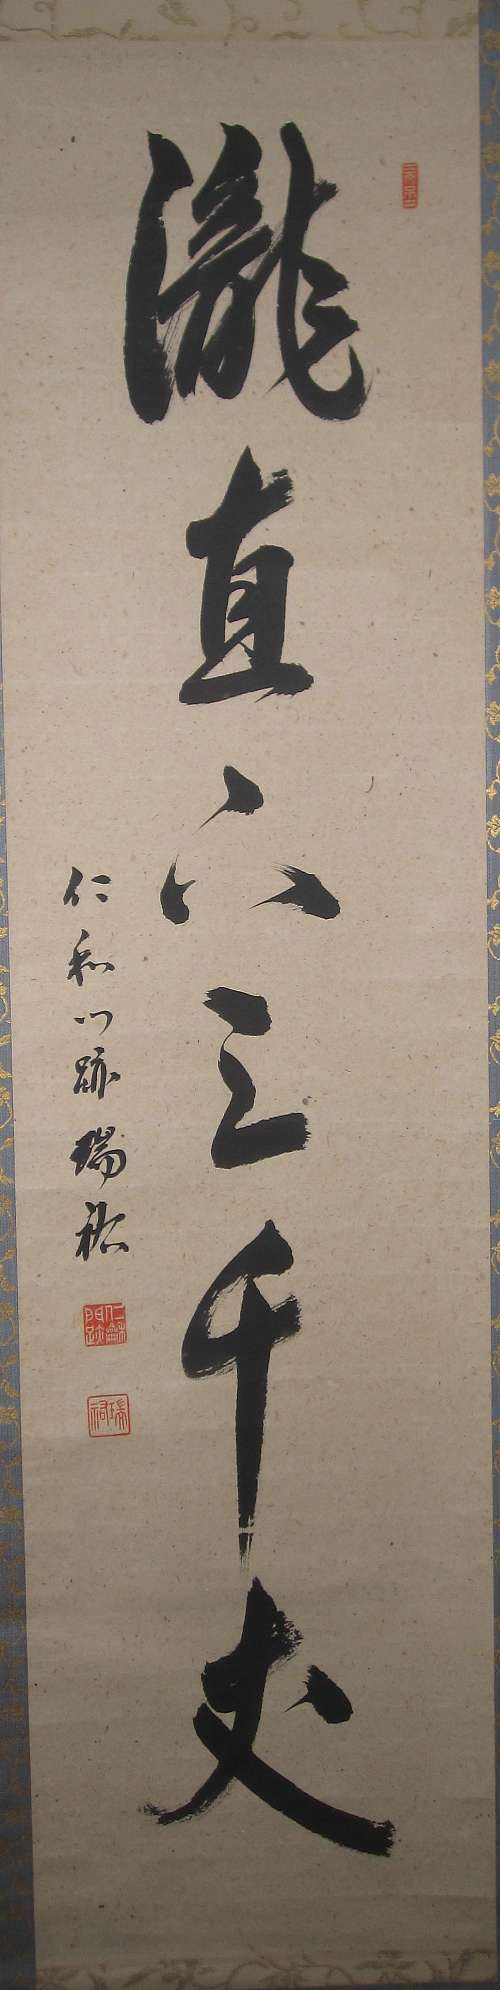 瀧直下三千丈
仁和門跡 瑞祐
仁龢門跡
瑞祐